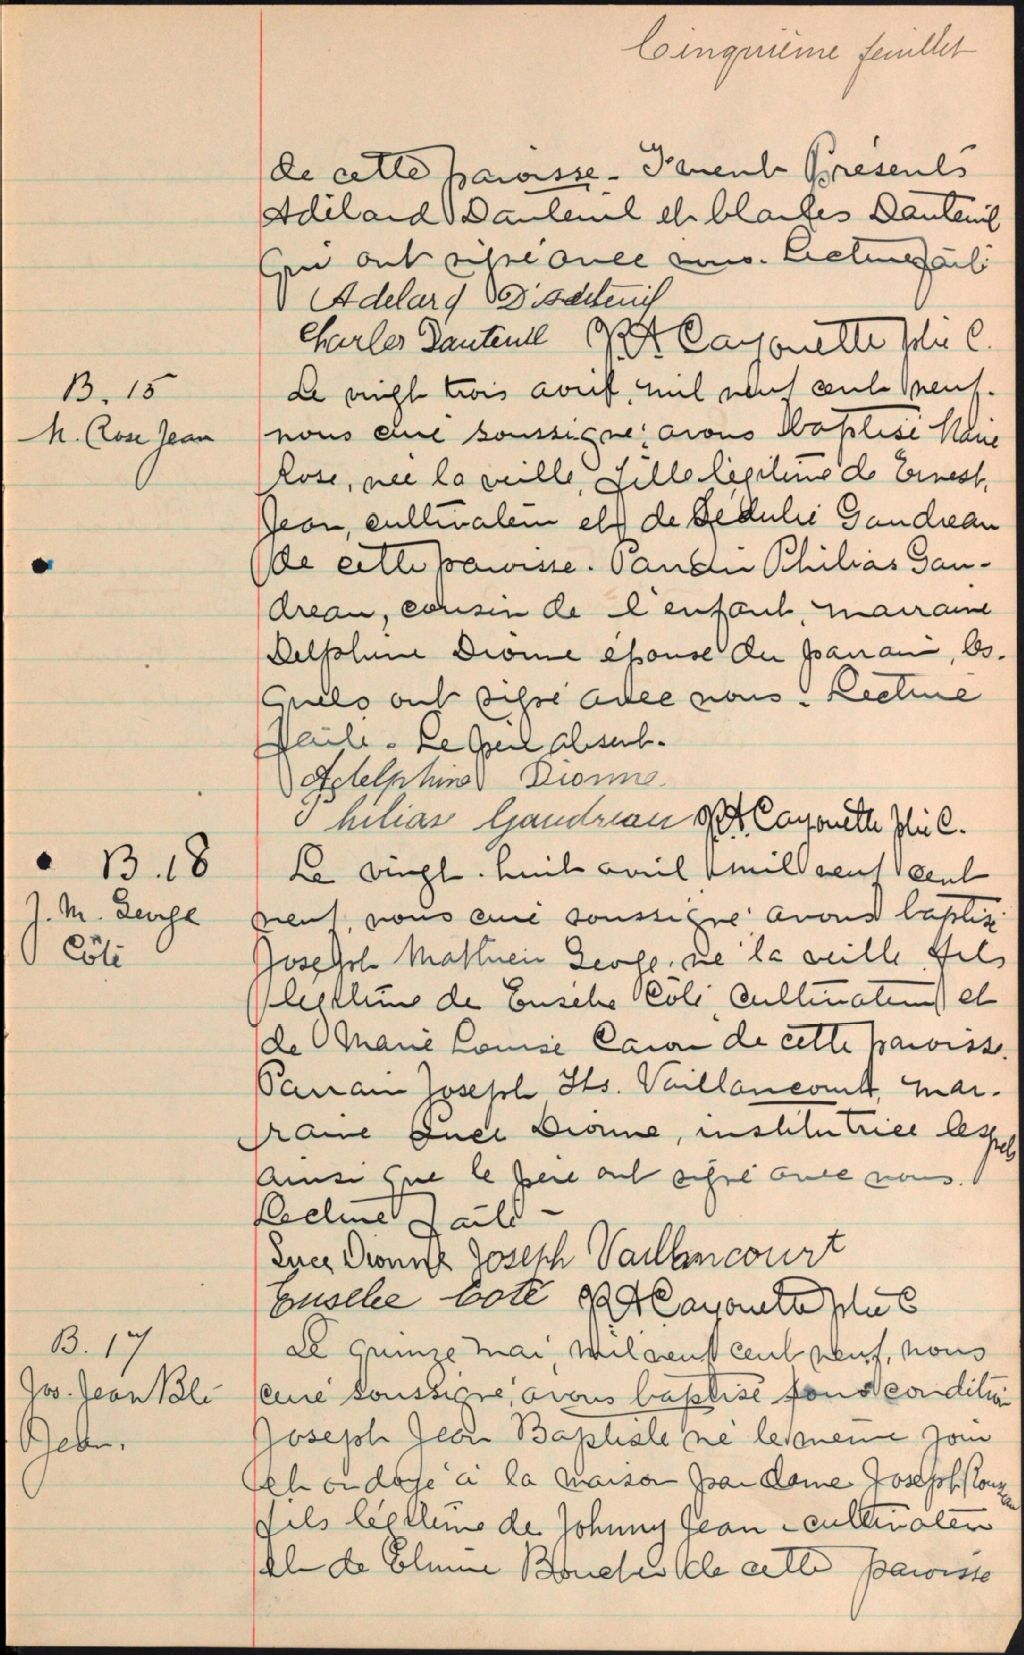 Cinquième feuillet
de cette paroisse - Furent Présents
Adélard Dauteuil et Charles Dauteuil
qui ont signé avec nous. Lecture faite
Adelard D'auteuil
Charles Dauteuil J.A. Cayouette ptre C.
B. 15
M. Rose Jean
Le vingt trois avril, mil neuf cent neuf.
nous curé soussigné avons baptisé Marie
Rose, née la veille, fille légitime de Ernest,
Jean, cultivateur et de Sédulie Gaudreau
de cette paroisse. Parrain Philias Gau-
dreau, cousin de l'enfant, marraine
Delphine Dionne épouse du parrain, les-
quels ont signé avec nous. Lecture
faite - Le père absent.
Adelphine Dionne
Philias Gaudreau J.A. Cayouette ptre C.
B. 18
J. M. George
Côté
Le vingt-huit avril mil neuf cent
neuf, nous curé soussigné avons baptisé
Joseph Mathieu George, né la veille fils
légitime de Eusèbe Côté, cultivateur et
de Marie Louise Caron de cette paroisse.
Parrain Joseph Vaillancourt, mar-
raine Luce Dionne, institutrice lesquels
ainsi que le père ont signé avec nous.
Lecture faite -
Luce Dionne Joseph Vaillancourt
Eusebe Coté J A Cayouette ptre C
B. 17
Jos. Jean Bte
Jean.
Le quinze mai, mil neuf cent neuf, nous
curé soussigné, avons baptisé sous condition
Joseph Jean Baptiste né le même jour
et ondoyé à la maison par dame Joseph
fils légitime de Johnny Jean - cultivateur
et de Elmire Boucher de cette paroisse